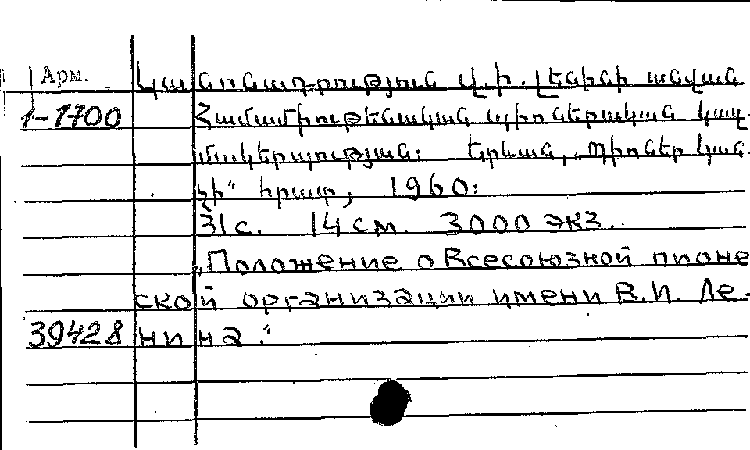 Арм. Կանոնադրություն Վ.Ի. Լենինի անվան
1-1700 Համամիութենական պիոներական կազ-
մակերպության: Երևան, „Պիոներ կան-
չի" հրատ, 1960:
31с. 14 см. 3000 экз.
„Положение о Всесоюзной пионе
ской организации имени В.И. Ле-
39428 нина."